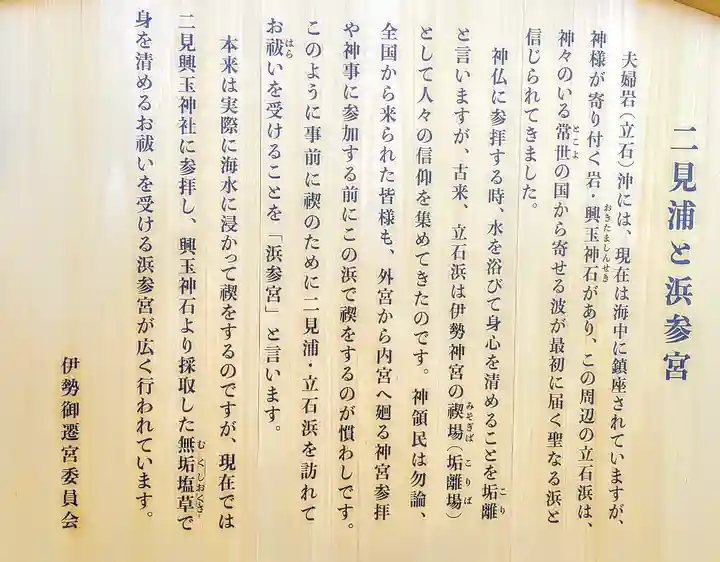 二見浦と浜参宮
夫婦岩（立石）沖には、現在は海中に鎮座されていますが、
神様が寄り付く岩・興玉神石があり、この周辺の立石浜は、
神々のいる常世の国から寄せる波が最初に届く聖なる浜と
信じられてきました。
神仏に参拝する時、水を浴びて身心を清めることを垢離
と言いますが、古来、立石浜は伊勢神宮の禊場（垢離場）
として人々の信仰を集めてきたのです。神領民は勿論、
全国から来られた皆様も、外宮から内宮へ廻る神宮参拝
や神事に参加する前にこの浜で禊をするのが慣わしです。
このように事前に禊のために二見浦・立石浜を訪れて
お祓いを受けることを「浜参宮」と言います。
本来は実際に海水に浸かって禊をするのですが、現在では
二見興玉神社に参拝し、興玉神石より採取した無垢塩草で
身を清めるお祓いを受ける浜参宮が広く行われています。
伊勢御遷宮委員会
おきたましんせき
とこよ
こり
みそぎば
こりば
はら
むくしおくさ